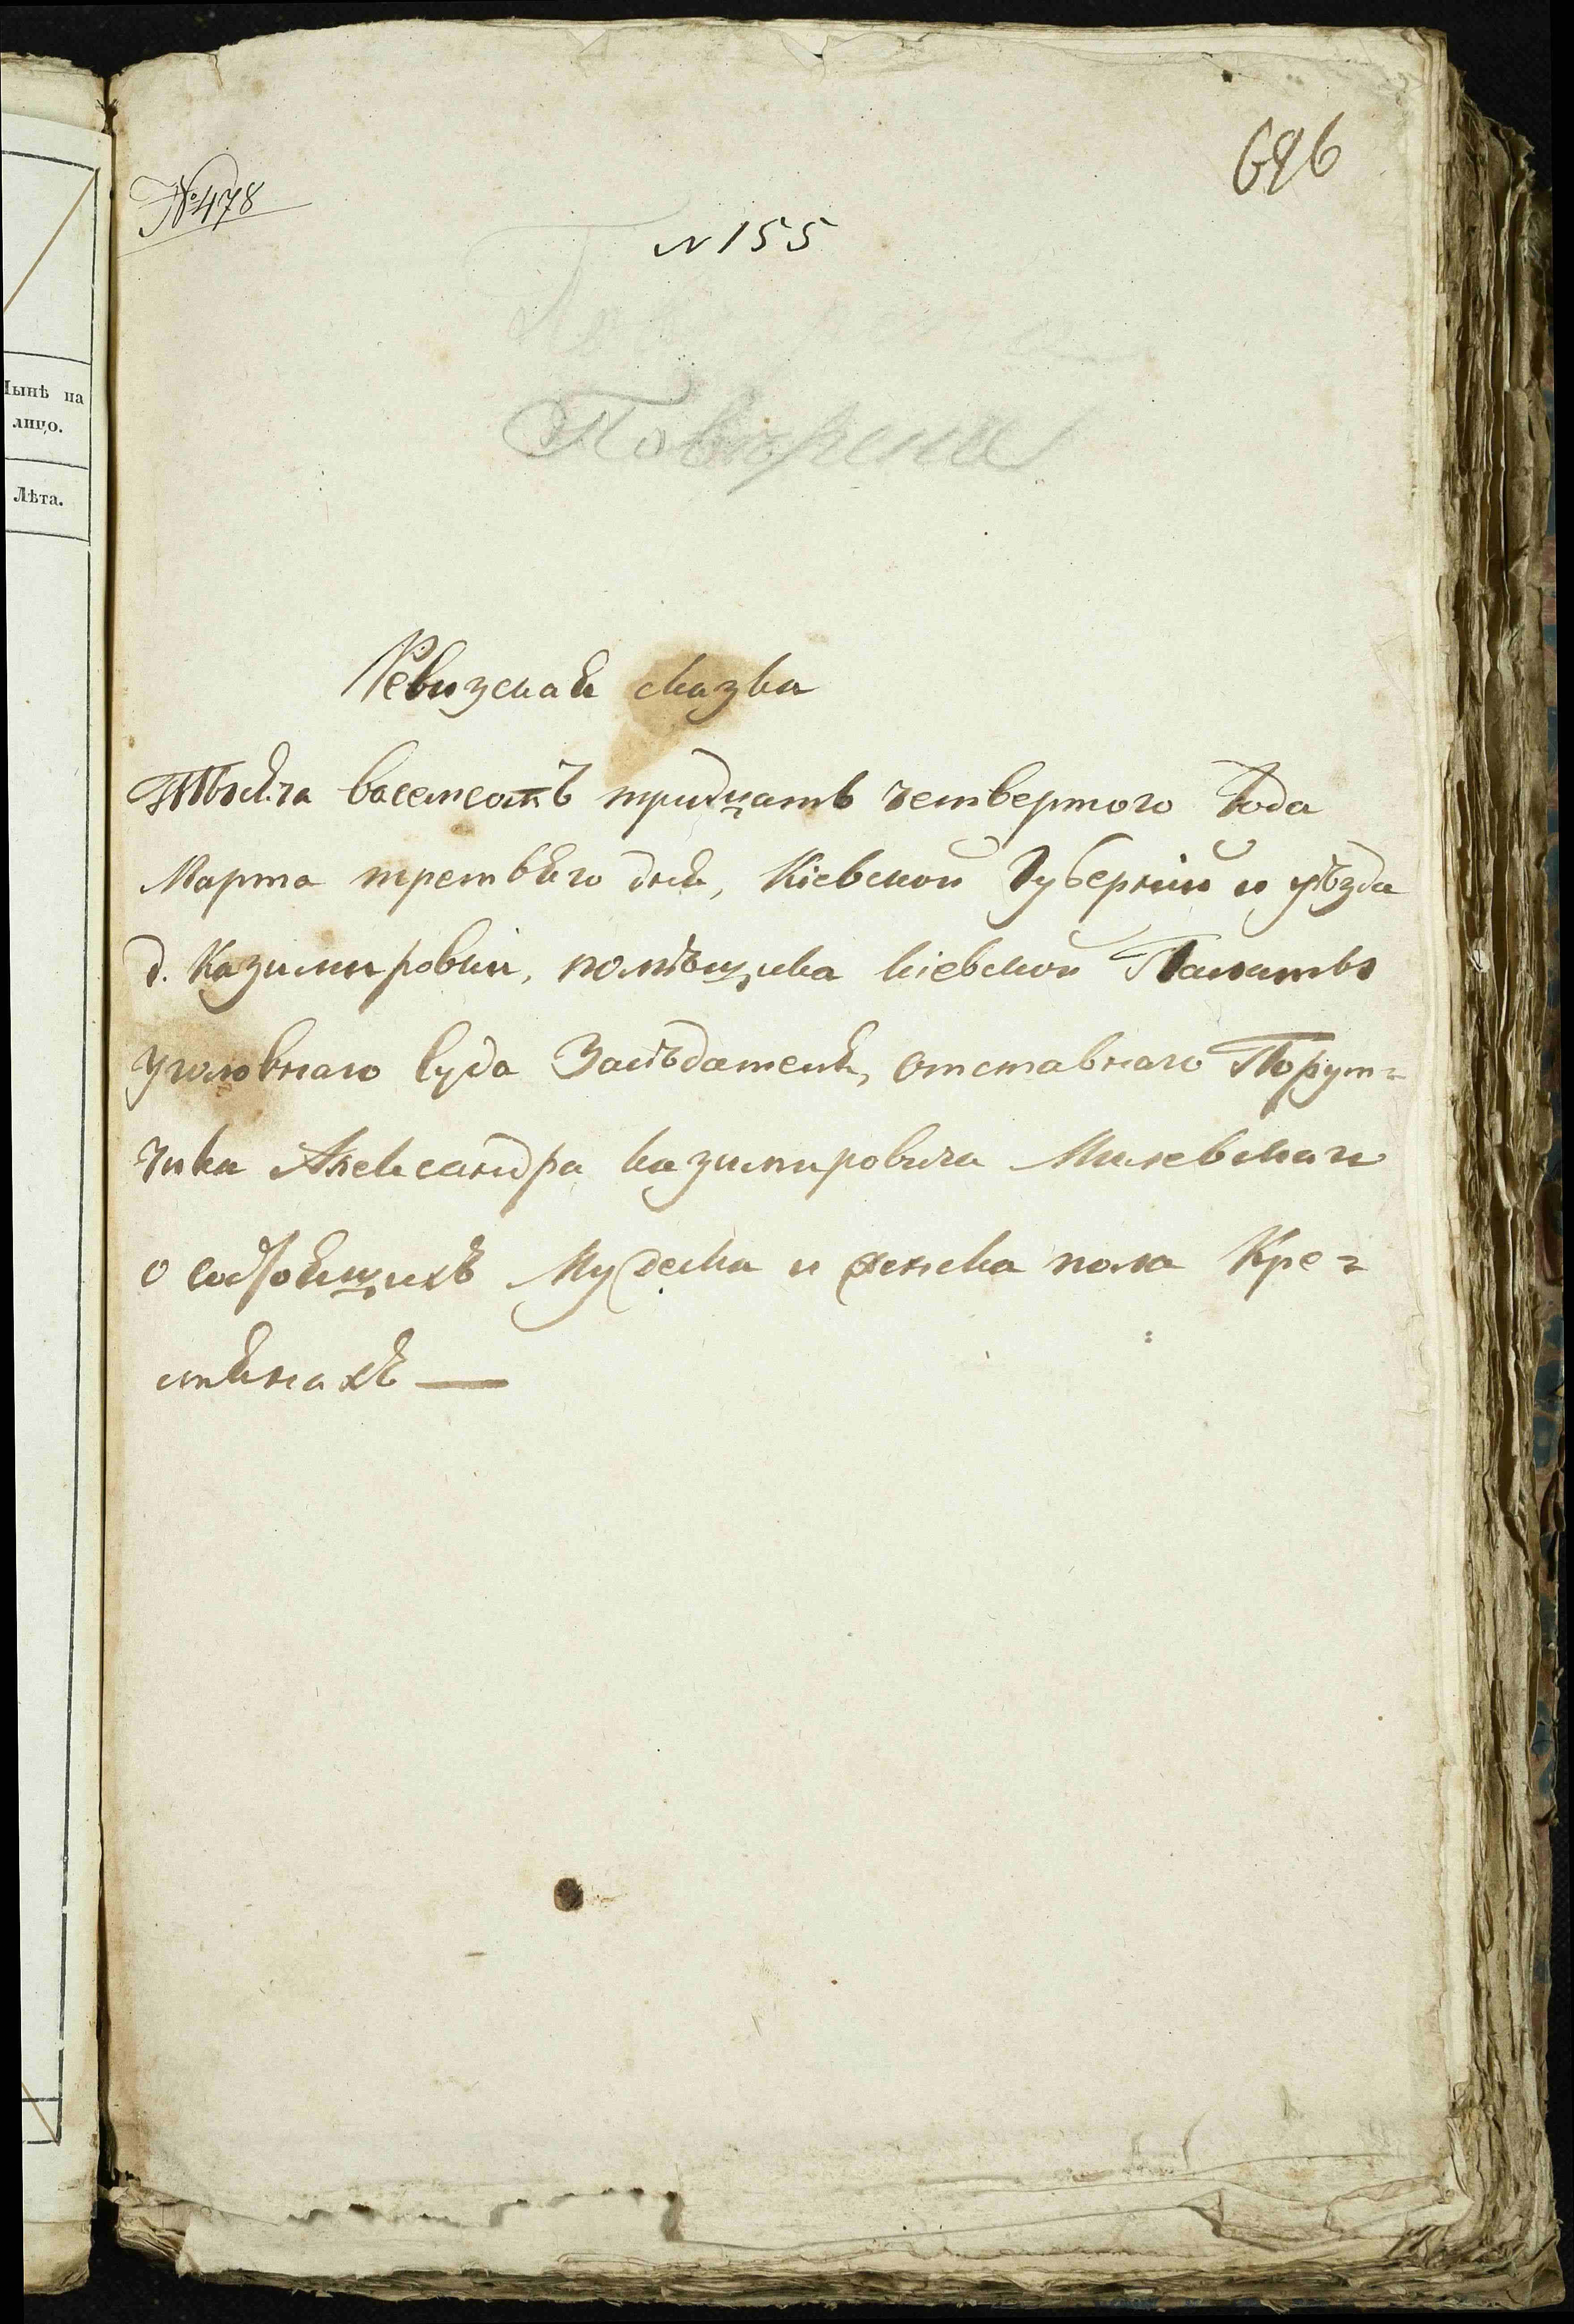 Нынѣ на
лицо.
Лѣта.
№478
696
№155
Повѣрена
Ревизская сказка
Тысяча восемсотъ тридцать четвертого Года
Марта третьяго дня, Кіевской Губерніи и уѣзда
д. Казимировки, помѣщика Кіевской Палаты
уголовнаго Суда Засѣдателя, отставнаго Порут=
чика Александра Казимировича Милевскаго
о состоящихъ Мужеска и женска пола Кре=
стянахъ —